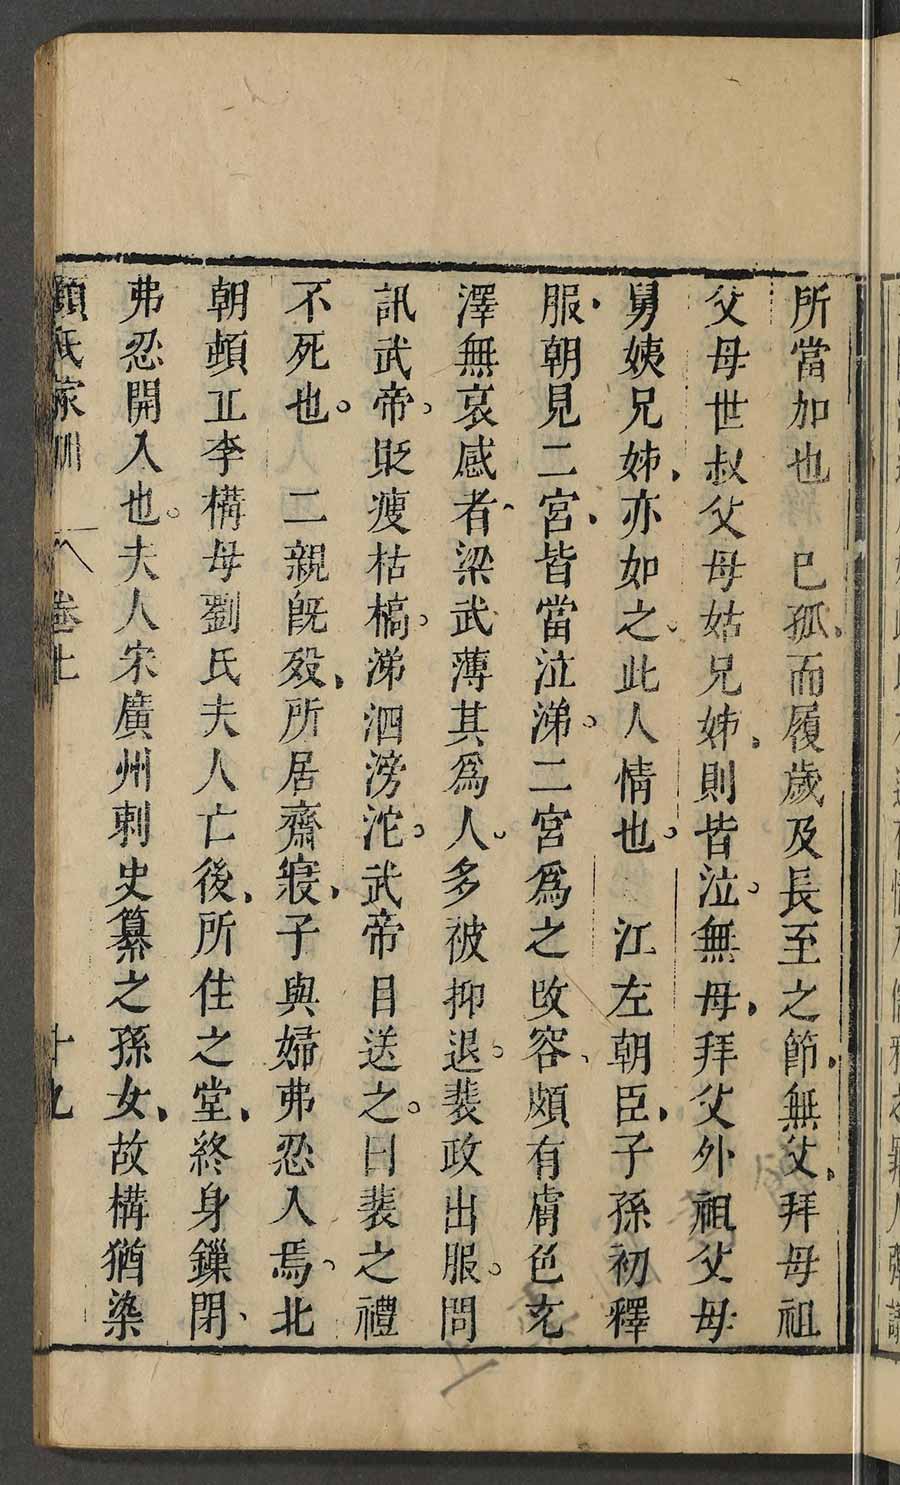 所當加也　已孤而履歲及長至之節無父拜母祖
父母世叔父母姑兄姊則皆泣無母拜父外祖父母
舅姨兄姊亦如之此人情也　江左朝臣子孫初釋
服朝見二宮皆當泣涕二宮爲之改容頗有膚色充
澤無哀感者梁武薄其爲人多被抑退裴政出服問
訊武帝貶瘦枯槁涕泗滂沱武帝目送之曰裴之禮
不死也　二親旣歿所居齋寢子與婦弗忍入焉北
朝頓丘李構母劉氏夫人亡後所住之堂終身鏁閉
弗忍開入也夫人宋廣州刺史纂之孫女故構猶染
顏氏家訓　卷上　十九